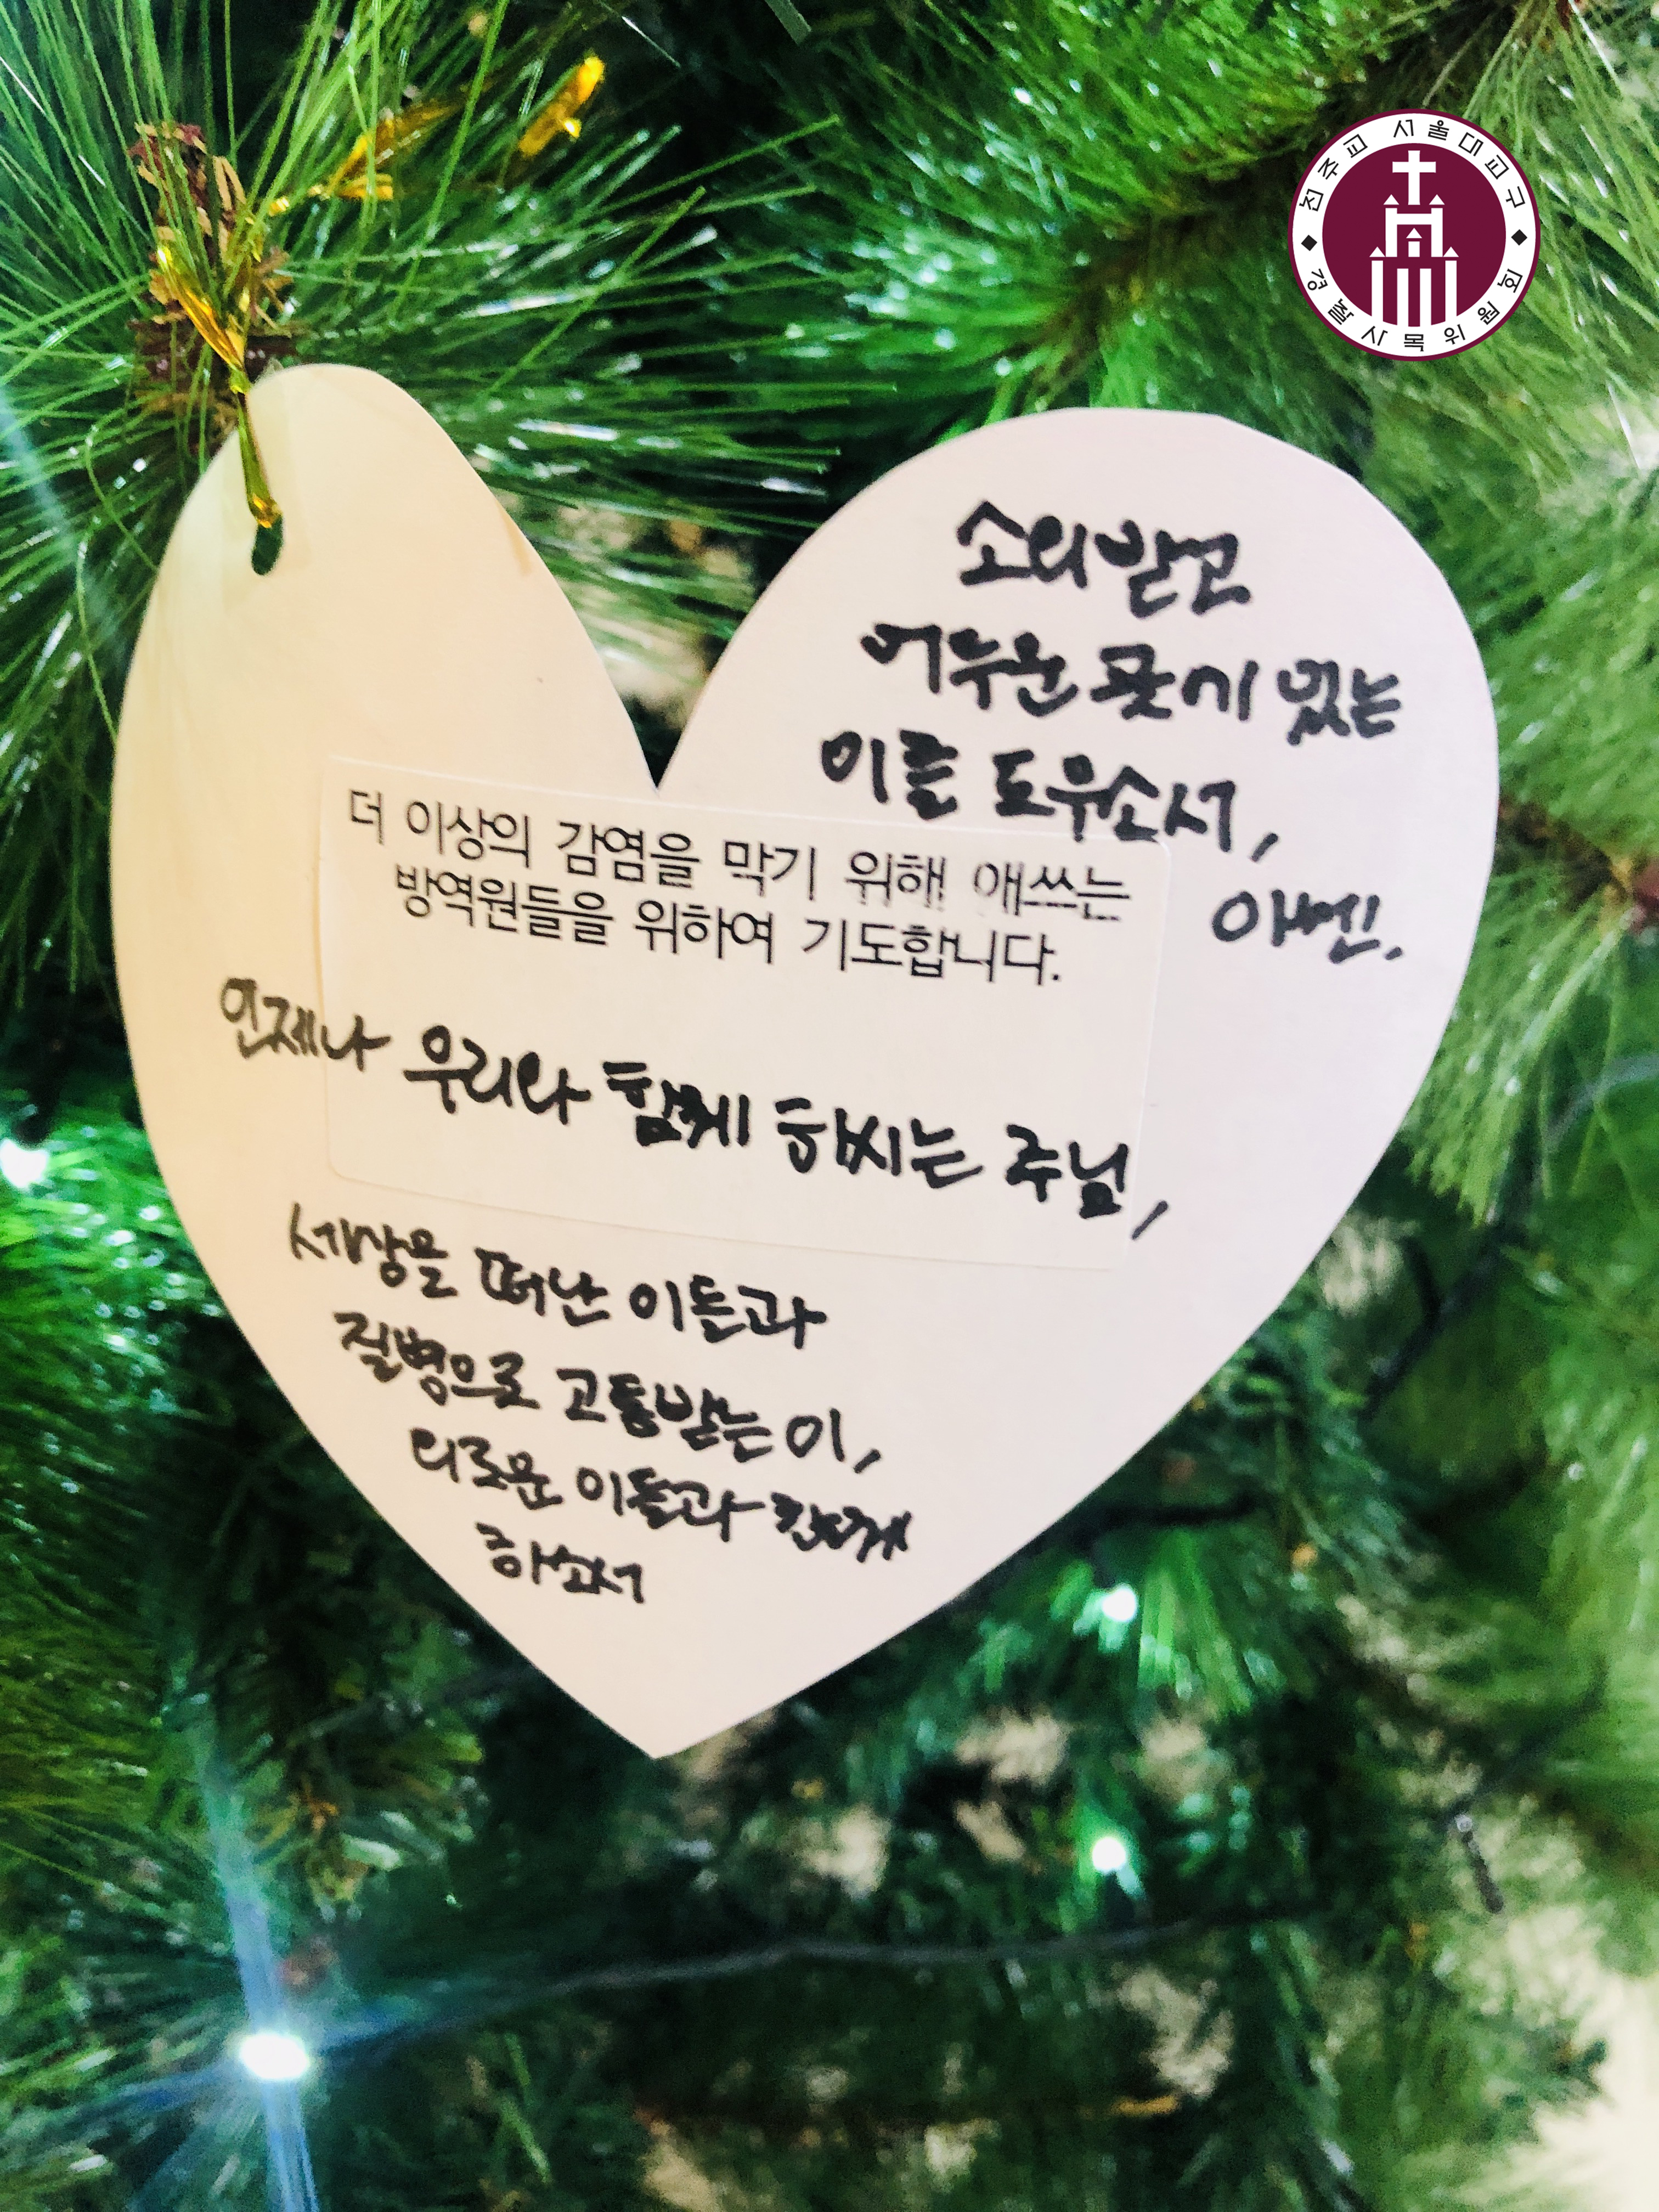 천주교 서울대교구
경찰사목위원회
더 이상의 감염을 막기 위해 애쓰는
방역원들을 위하여 기도합니다.
언제나 우리와 함께 하시는 주님,
세상을 떠난 이들과
질병으로 고통받는 이,
외로운 이들과 함께
하소서
소외받고
어두운 곳에 있는
이를 도우소서,
아멘.